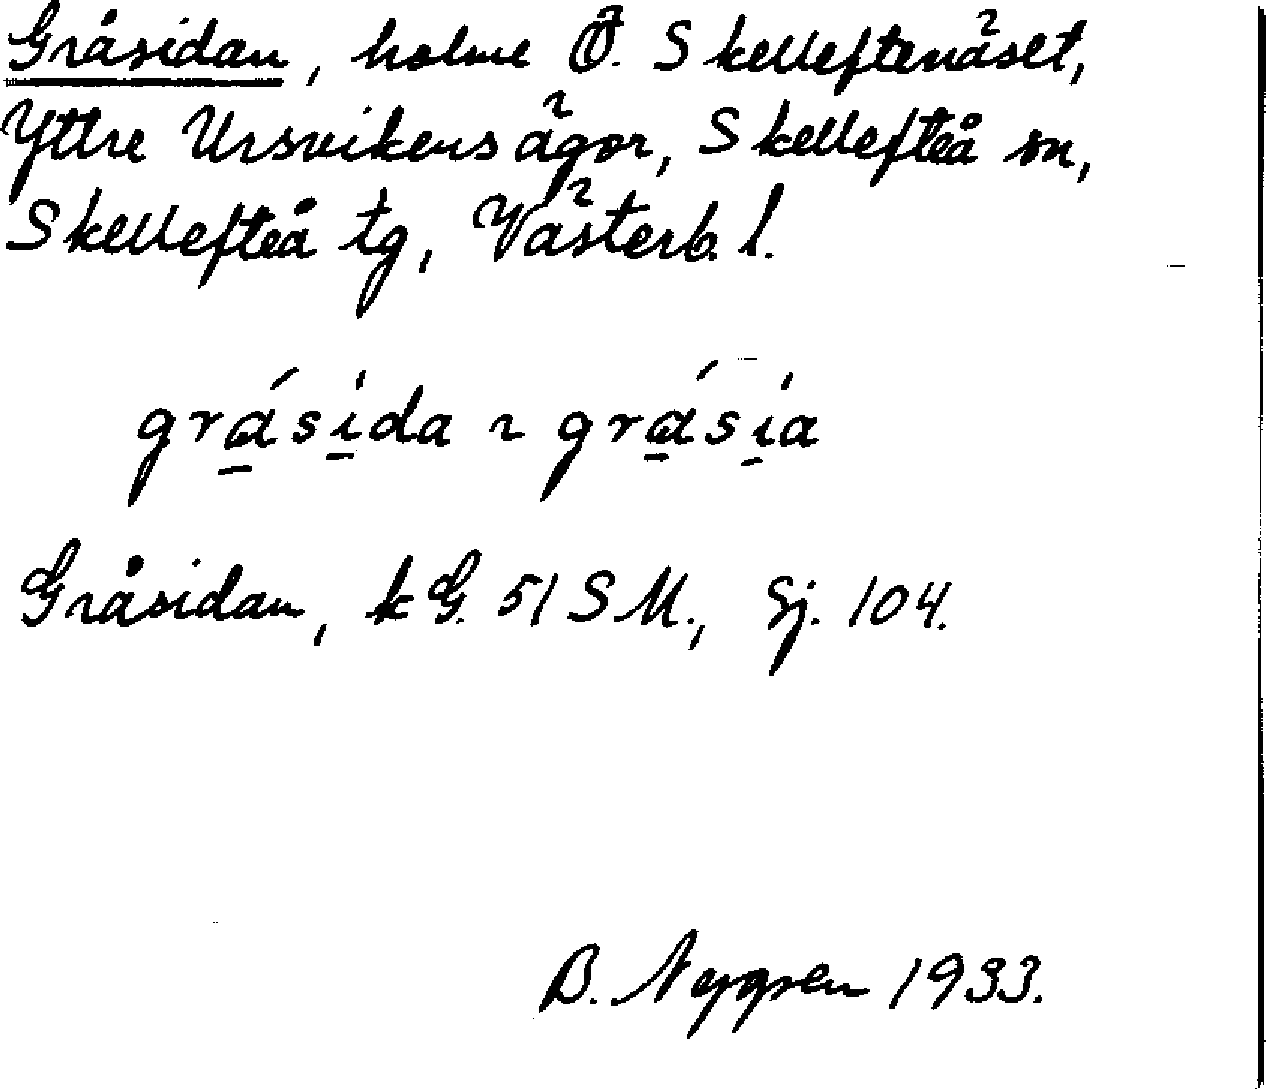 Gråsidan, holme Ö. Skelleftenäset,
Yttre Ursvikens ägor, Skellefteå sn,
Skellefteå tg, Västerb. l.
grásida ~ grásia
Gråsidan, kG. 51 SM., Sj. 104.
B. Nygren 1933.